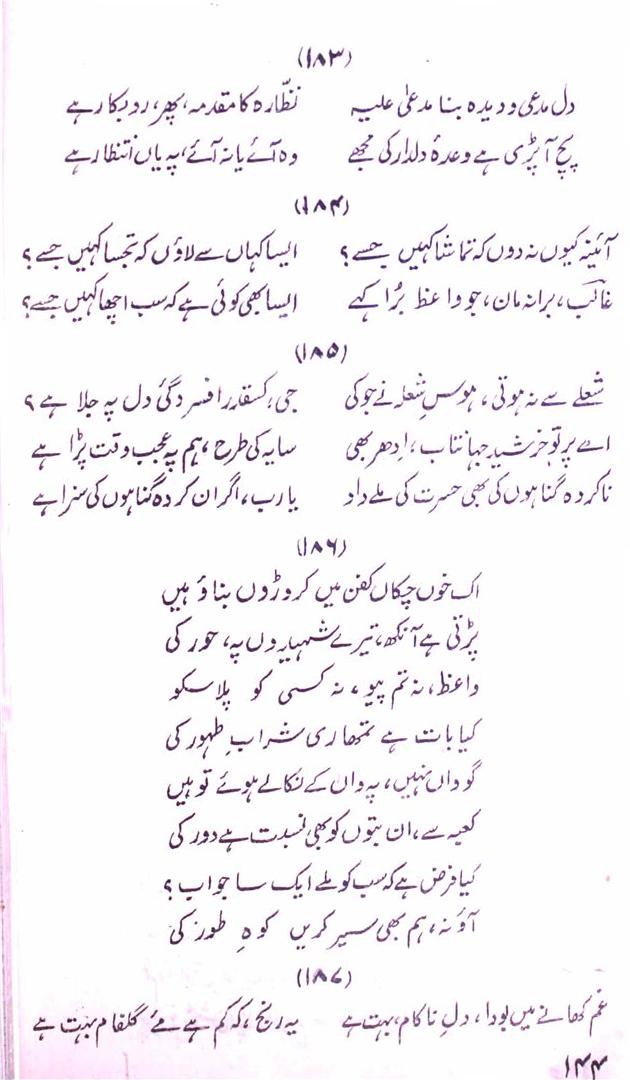 (۱۸۳)
دل مدعی و دیدہ بنا مدعیٰ علیہ نظّارہ کا مقدمہ، پھر، روبکار ہے
پچ آ پڑی ہے وعدۂ دلدار کی مجھے وہ آئے یا نہ آئے، پہ یاں انتظار ہے
(۱۸۴)
آئینہ کیوں نہ دوں کہ تماشا کہیں جسے؟ ایسا کہاں سے لاؤں کہ تجھسا کہیں جسے؟
غالب، برا نہ مان، جو واعظ بُرا کہے ایسا بھی کوئی ہے کہ سب اچھا کہیں جسے؟
(۱۸۵)
شعلے سے نہ ہوتی، ہوسِ شعلہ نے جو کی جی، کسقدر افسردگیٔ دل پہ جلا ہے؟
اے پرتوِ خرشیدِ جہانتاب، اِدھر بھی سایہ کی طرح، ہم پہ عجب وقت پڑا ہے
ناکردہ گناہوں کی بھی حسرت کی ملے داد یا رب، اگر ان کردہ گناہوں کی سزا ہے
(۱۸۶)
اک خوں چکاں کفن میں کروڑوں بناؤ ہیں
پڑتی ہے آنکھ، تیرے شہیدوں پہ، حور کی
واعظ، نہ تم پیو، نہ کسی کو پلا سکو
کیا بات ہے تمھاری شرابِ طہور کی
گو واں نہیں، پہ واں کے نکالے ہوئے تو ہیں
کعبہ سے، ان بتوں کو بھی نسبت ہے دور کی
کیا فرض ہے کہ سب کو ملے ایک سا جواب؟
آؤ نہ، ہم بھی سیر کریں کوہِ طور کی
(۱۸۷)
غم کھانے میں بودا، دلِ ناکام، بہت ہے یہ رنج، کہ کم ہے مئے گلفام بہت ہے
۱۴۴